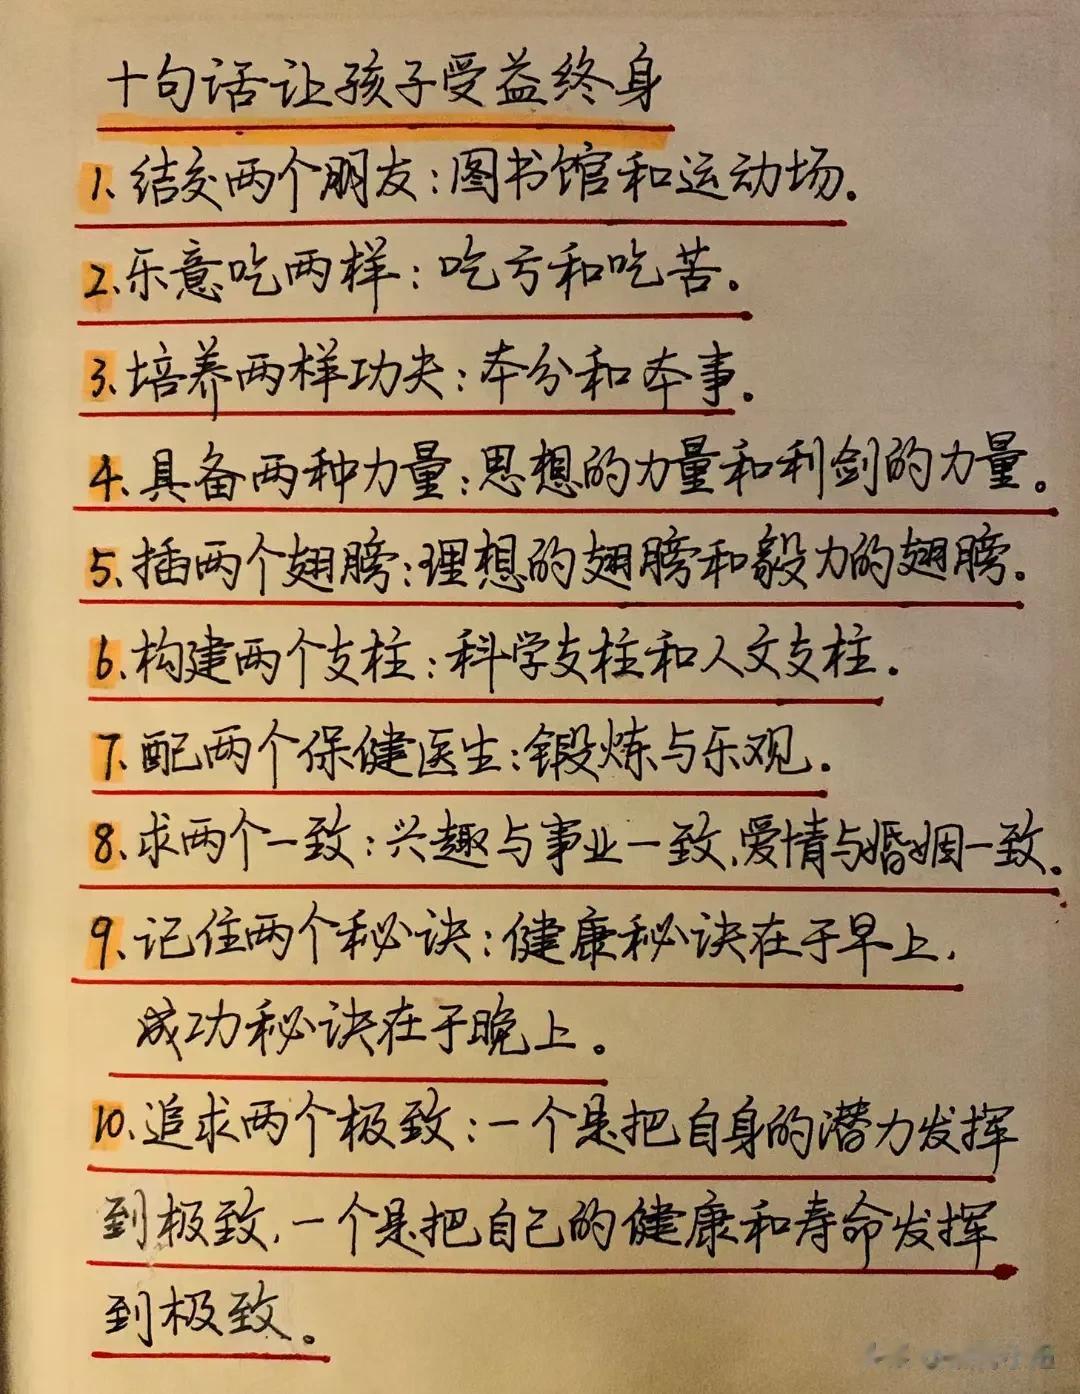 十句话让孩子受益终身
1、结交两个朋友：图书馆和运动场。
2、乐意吃两样：吃亏和吃苦。
3、培养两样功夫：本分和本事。
4、具备两种力量：思想的力量和利剑的力量。
5、插两个翅膀：理想的翅膀和毅力的翅膀。
6、构建两个支柱：科学支柱和人文支柱。
7、配两个保健医生：锻炼与乐观。
8、求两个一致：兴趣与事业一致，爱情与婚姻一致。
9、记住两个秘诀：健康秘诀在于早上，
成功秘诀在于晚上。
10、追求两个极致：一个是把自身的潜力发挥
到极致，一个是把自己的健康和寿命发挥
到极致。